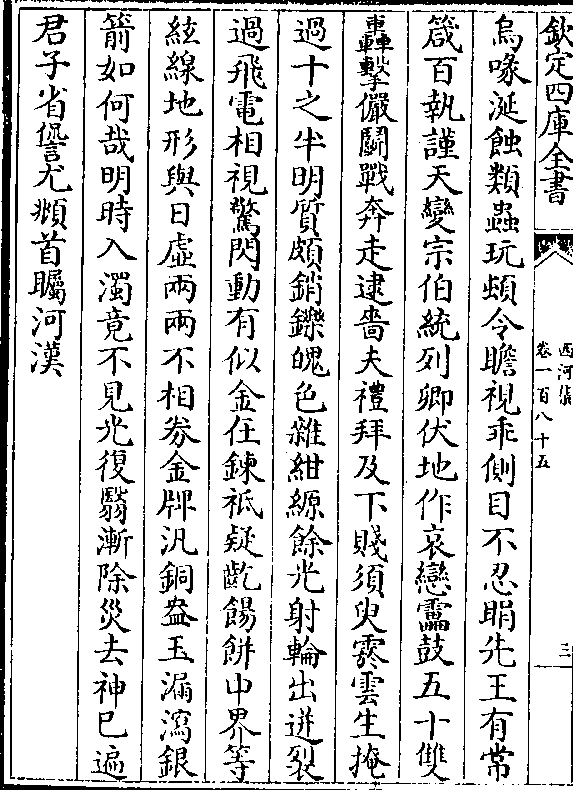 欽定四庫全書
西河集
卷一百八十五
三
烏喙涎蝕類蟲玩蛓令瞻視乖側目不忍睊先王有常
箴百執謹天變宗伯統列卿伏地作哀戀靁鼓五十雙
轟擊儼鬭戰奔走逮嗇夫禮拜及下賤須臾霧雲生掩
過十之半明質頗銷鑠魄色雜紺縓餘光射輪出迸裂
過飛電相視驚閃動有似金在鍊祗疑齕餳餅中界等
絃線地形與日虛兩兩不相劵金牌汎銅盎玉漏瀉銀
箭如何哉明時入濁竟不見光復翳漸除災去神已遍
君子省愆尤頫首矚河漢